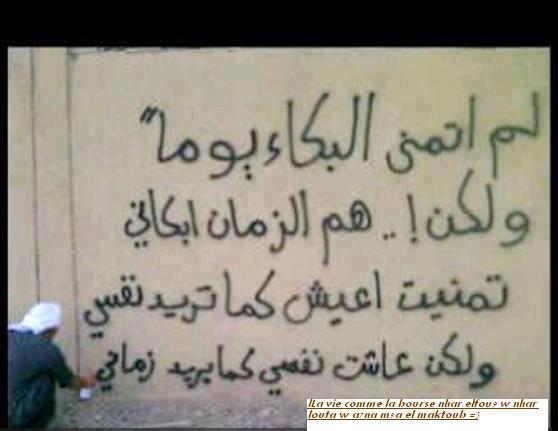 لم اتمنى البكاء يوما"
ولكن !.. هم الزمان ابكاني
تمنيت اعيش كما تريد نفسي
ولكن عاشت نفسي كما يريد زماني
lLa vie comme la bourse nhar elfou9 w nhar
louta w a7na m3a el maktoub =)